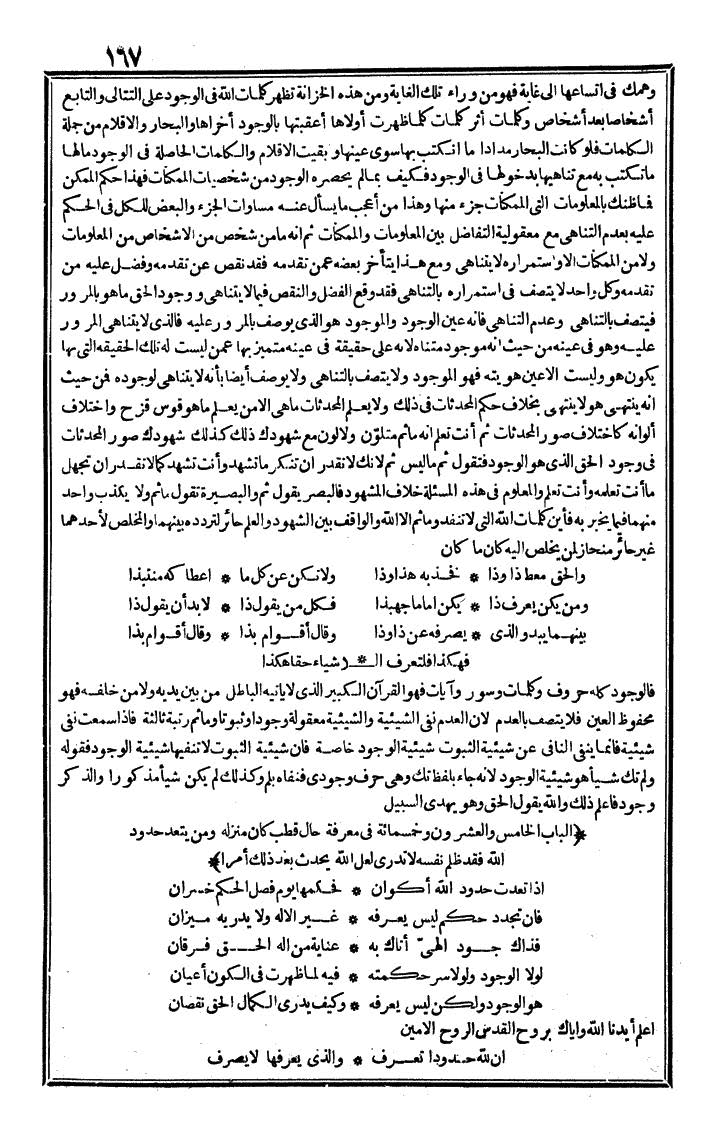 ١٦٧
وهمك فى اتساعها الى غاية فهو من وراء تلك الغاية ومن هذه الخزانة تظهر كلمات الله فى الوجود على التتالى والتتابع
أشخاصا بعد أشخاص وكلمات أثر كلمات كلما ظهرت أولاها أعقبتها بالوجود أخراها والبحار والاقلام من جملة
الكلمات فلو كانت البحار مدادا ما انكتب بها سوى عينها وبقيت الاقلام والكلمات الحاصلة فى الوجود ما لها
ما تكتب به مع تناهيها بدخولها فى الوجود فكيف بما لم يحصره الوجود من شخصيات الممكنات فهذا حكم الممكن
فما ظنك بالمعلومات التى الممكنات جزء منها وهذا من أعجب ما يسأل عنه مساوات الجزء والبعض للكل فى الحكم
عليه بعدم التناهى مع معقولية التفاضل بين المعلومات والممكنات ثم انه ما من شخص من الاشخاص من المعلومات
ولا من الممكنات الا واستمراره لا يتناهى ومع هذا يتأخر بعضه عمن تقدمه فقد نقص عن تقدمه وفضل عليه من
تقدمه وكل واحد لا يتصف فى استمراره بالتناهى فقد وقع الفضل والنقص فيما لا يتناهى ووجود الحق ما هو بالمرور
فيتصف بالتناهى وعدم التناهى فانه عين الوجود والموجود هو الذى يوصف بالمرور عليه فالذى لا يتناهى المرور
عليه وهو فى عينه من حيث انه موجود متناه لانه على حقيقة فى عينه متميز بها عمن ليست له تلك الحقيقه التى بها
يكون هو وليست الا عين هويته فهو الموجود ولا يتصف بالتناهى ولا يوصف أيضا بأنه لا يتناهى لوجوده فمن حيث
انه ينتهى هو لا ينتهى بخلاف حكم المحدثات فى ذلك ولا يعلم المحدثات ما هى الا من يعلم ما هو قوس قزح واختلاف
ألوانه كاختلاف صور المحدثات ثم أنت تعلم انه ما ثم متلوّن ولا لون مع شهودك ذلك كذلك شهودك صور المحدثات
فى وجود الحق الذى هو الوجود فتقول ثم ما ليس ثم لانك لا تقدر ان تنكر ما تشهد وأنت تشهد كما لا تقدر ان تجهل
ما أنت تعلمه وأنت تعلم والمعلوم فى هذه المسئلة خلاف المشهود فالبصر يقول ثم والبصيرة تقول ما ثم ولا يكذب واحد
منهما فيما يخبر به فأين كلمات الله التى لا تنفد وما ثم الا الله والواقف بين الشهود والعلم حائر لتردده بينهما والمخلص لأحدهما
غير حائر منحاز لمن يخلص اليه كان ما كان
والحق معط ذا وذا * فخذ به هذا وذا ولا تكن عن كل ما * اعطاكه منتبذا
ومن يكن يعرف ذا * يكن اماما جهبذا فكل من يقول ذا * لا بد أن يقول ذا
بينهما يبدو الذى * يصرفه عن ذا وذا وقال أقوام بذا * وقال أقوام بذا
فهكذا فلتعرف الـ * ـاشياء حقا هكذا
فالوجود كله حروف وكلمات وسور وآيات فهو القرآن الكبير الذى لا يأتيه الباطل من بين يديه ولا من خلفه فهو
محفوظ العين فلا يتصف بالعدم لان العدم نفى الشيئية والشيئية معقولة وجودا وثبوتا وما ثم رتبة ثالثة فاذا سمعت نفى
شيئية فانما ينفى النافى عن شيئية الثبوت شيئية الوجود خاصة فان شيئية الثبوت لا تنفيها شيئية الوجود فقوله
ولم تك شيأ هو شيئية الوجود لانه جاء بلفظ تك وهى حرف وجودى فنفاه بلم وكذلك لم يكن شيأ مذكورا والذكر
وجود فاعلم ذلك والله يقول الحق وهو يهدى السبيل
﴿الباب الخامس والعشرون وخمسمائة فى معرفة حال قطب كان منزله ومن يتعد حدود
الله فقد ظلم نفسه لا تدرى لعل الله يحدث بعد ذلك أمرا﴾
اذا تعدت حدود الله أكوان * فحكمها يوم فصل الحكم خسران
فان تجدد حكم ليس يعرفه * غير الاله ولا يدريه ميزان
فذاك جود الهىّ أتاك به * عناية من اله الحق فرقان
لولا الوجود ولولا سر حكمته * فيه لما ظهرت فى الكون أعيان
هو الوجود ولكن ليس يعرفه * وكيف يدرى الكمال الحق نقصان
اعلم أيدنا الله واياك بروح القدس الروح الامين
ان لله حدودا تعرف * والذى يعرفها لا يصرف